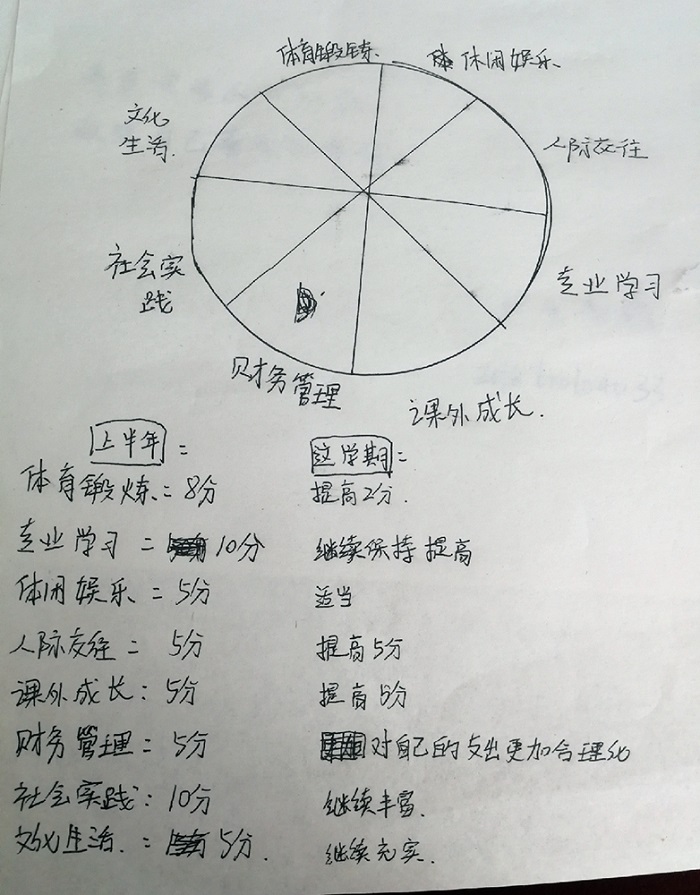 体育锻炼
休闲娱乐
文化
生活
人际交往
社会实
践
专业学习
财务管理
课外成长
上半年：
这学期：
体育锻炼：8分
提高2分
专业学习：10分
继续保持提高
休闲娱乐：5分
适当
人际交往：5分
提高5分
课外成长：5分
提高5分
财务管理：5分
对自己的支出更加合理化
社会实践：10分
继续丰富.
文化生活：5分.
继续充实.